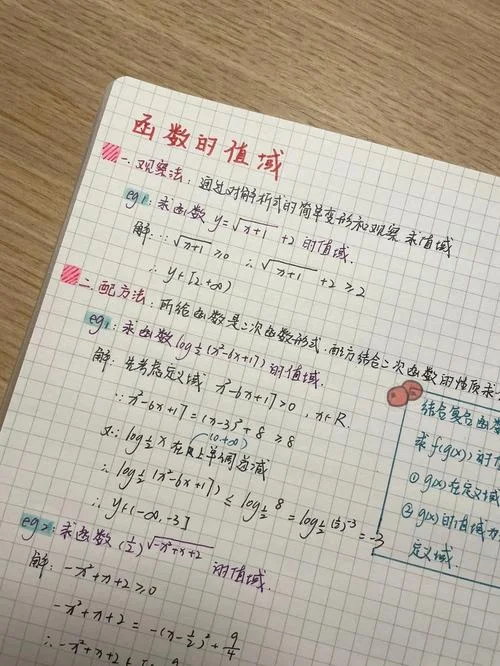 函数的值域
一.观察法:通过对解析式的简单变形和观察 求值域
eg1:求函数 y=√(x+1) +2 的值域.
解:∵√(x+1) ≥0 ∴ √(x+1) +2 ≥2
∴ y∈[2,+∞)
二.配方法:所给函数是二次函数形式.配方结合二次函数的性质求
eg1:求函数 log½(x²-6x+17) 的值域.
解:先考虑定义域 x²-6x+17>0, x∈R.
∵x²-6x+17=(x-3)²+8 ≥8
又∵log½x 在R上单调递减
(0,+∞)
∴ log½(x²-6x+17) ≤ log½8 = log½(½)⁻³=-3
∴ y∈(-∞,-3]
eg2:求函数 (½)^√(-x²+x+2) 的值域.
解:-x²+x+2≥0
-x²+x+2 = -(x-½)²+9/4
∴-x²+x+2
结合复合函数
求f(g(x))的
①g(x)在定义域
②g(x)的值域为
定义域.